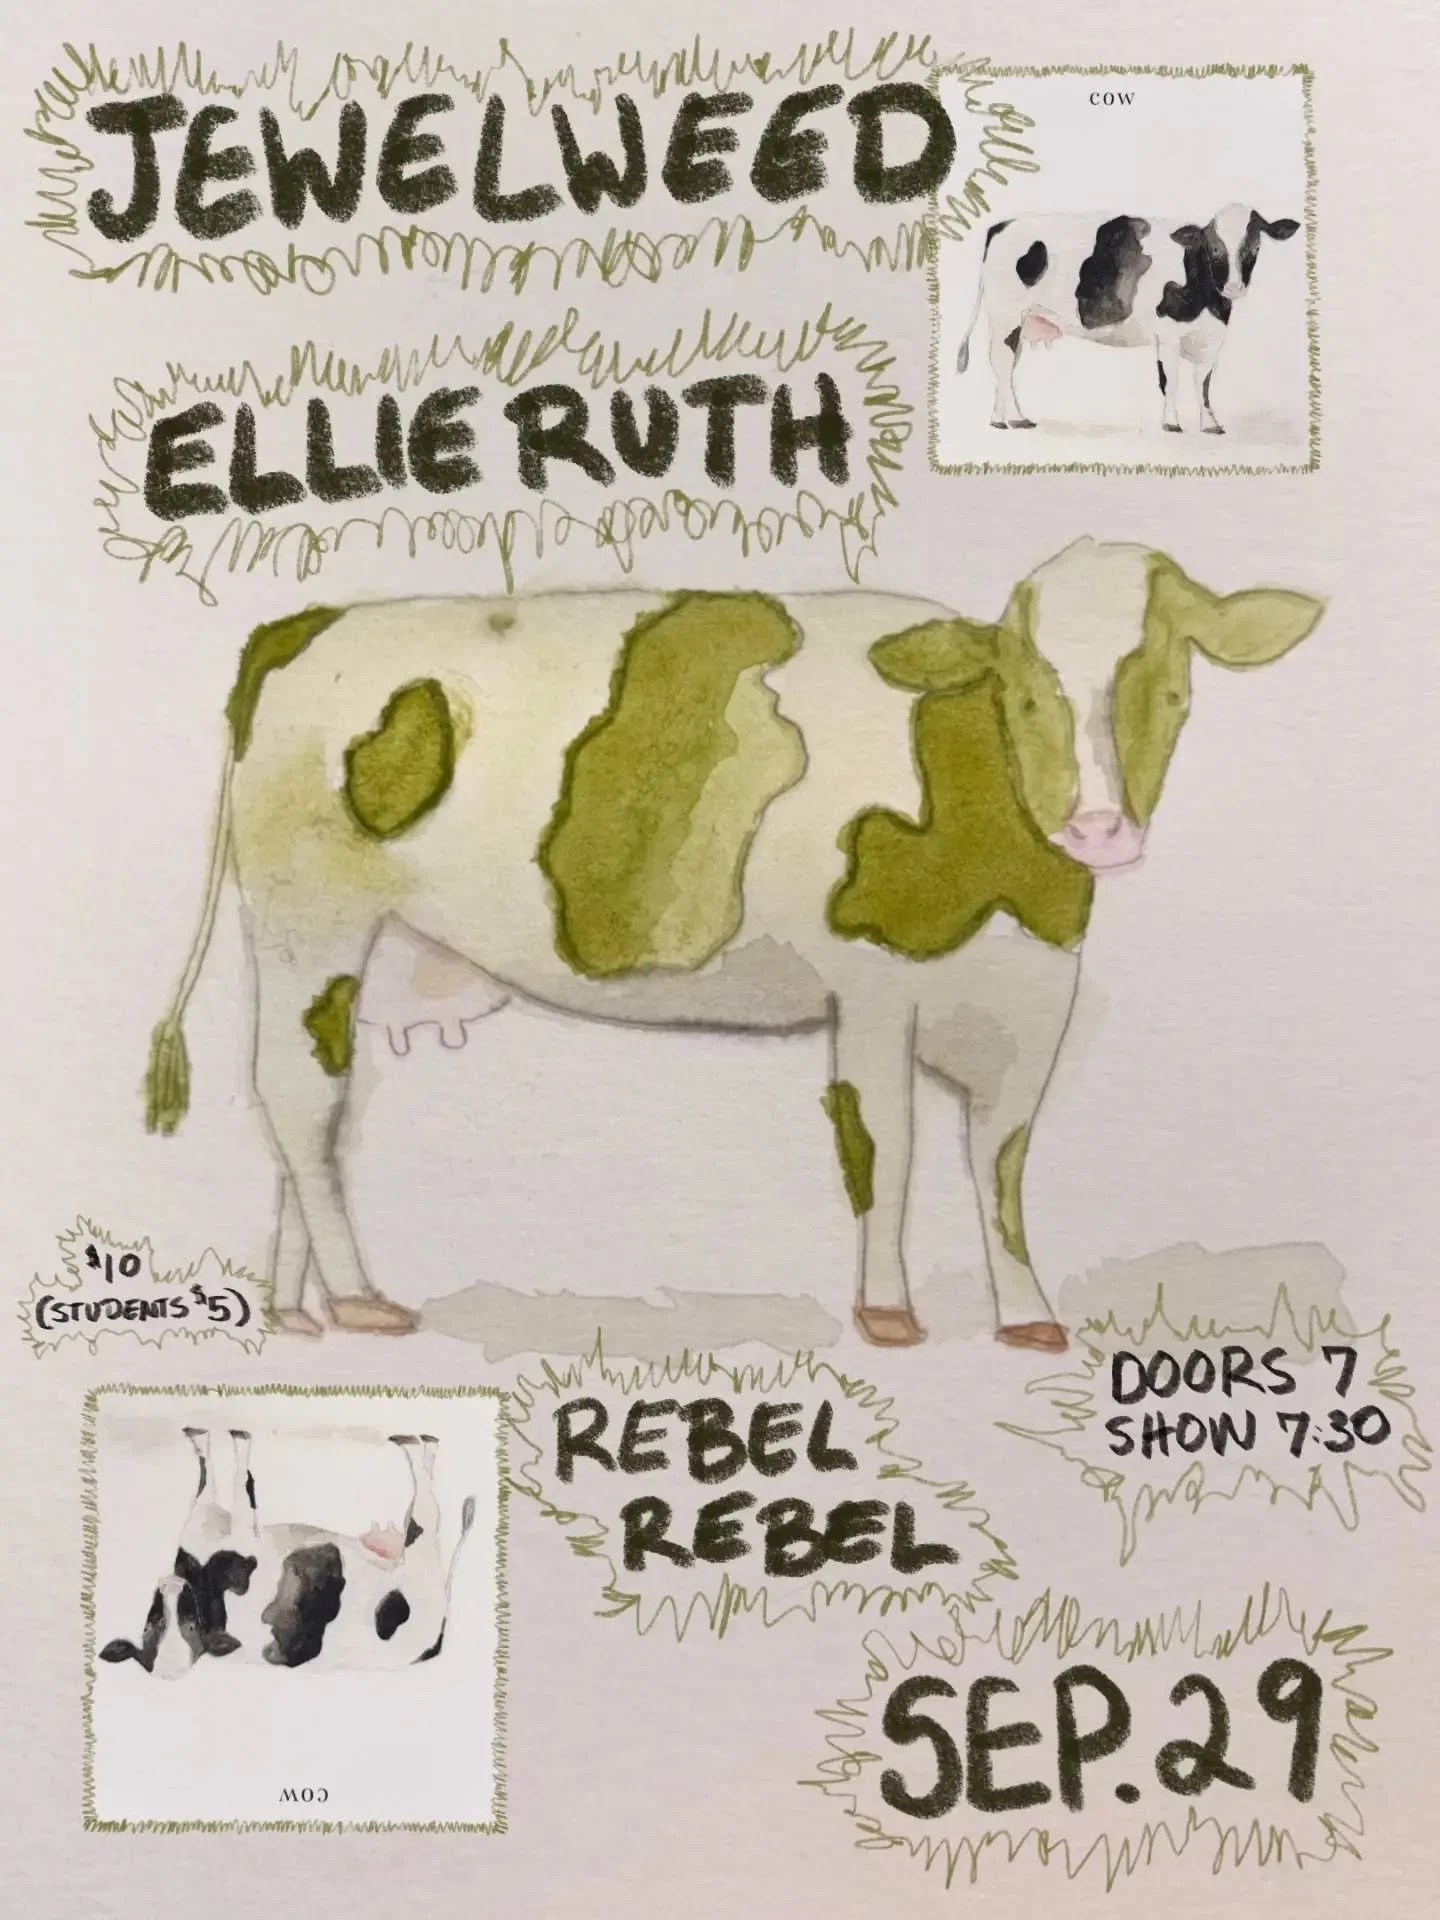 JEWELWEED
cow
ELLIE RUTH
$10
(STUDENTS $5)
DOORS 7
SHOW 7:30
REBEL
REBEL
SEP. 29
cow